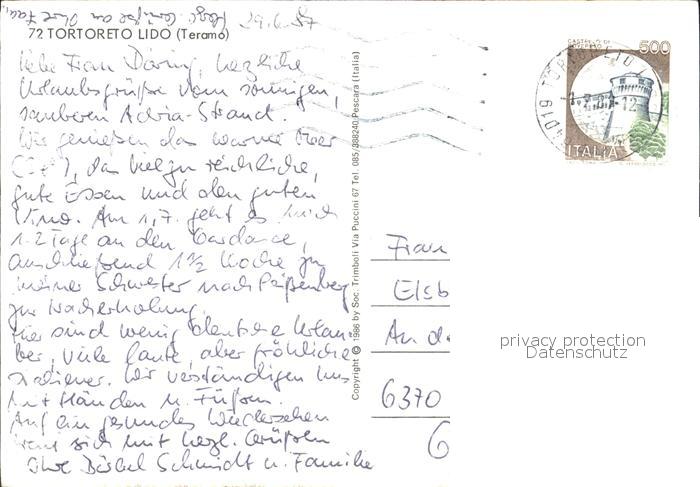 29.6.87
72 TORTORETO LIDO (Teramo)
Liebe Frau Döring, herzliche
Urlaubsgrüße vom sonnigen,
sauberen Adria-Strand.
Wir genießen das warme Meer
das viel zu reichliche,
gute Essen und den guten
Vino. Am 1.7. geht es noch
1-2 Tage an den Gardasee,
anschließend 1½ Woche zu
meiner Schwester nach Peißenberg
zur Nacherholung.
Hier sind wenig deutsche Urlau-
ber, viele laute, aber fröhliche
Italiener. Wir verständigen uns
mit Händen u. Füßen.
Auf ein gesundes Wiedersehen
freut sich mit herzl. Grüßen
Ihre Bärbel Schmidt u. Familie
Copyright © 1986 by Soc. Trimboli Via Puccini 67 Tel. 085/388240 Pescara (Italia)
CASTELLO DI
500
ITALIA
Frau
Elsb
An d
6370
6
privacy protection
Datenschutz